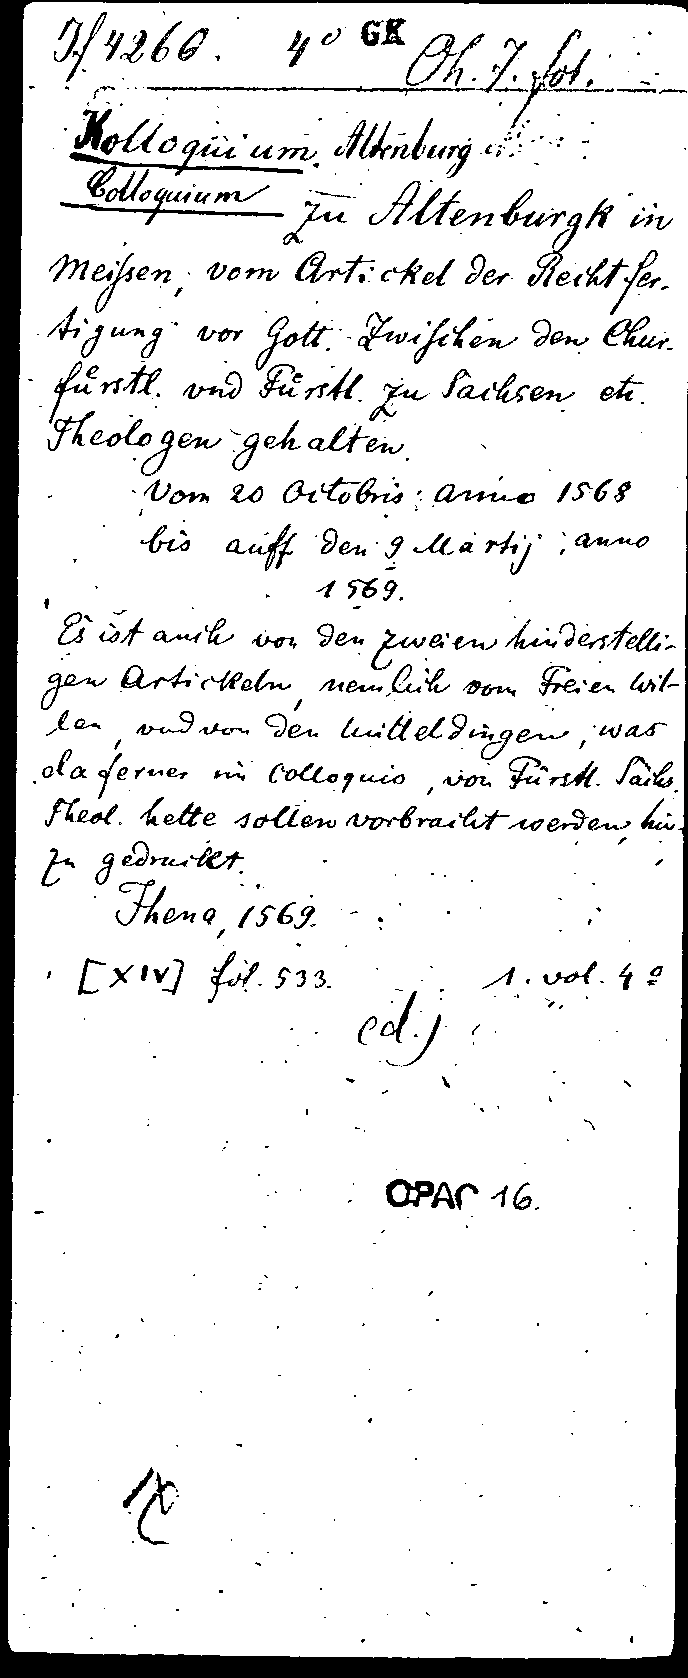 If 4260. 4° GK
Oh. 7. fol.
Kolloquium. Altenburg
Colloquium zu Altenburgk in
Meissen, vom Artickel der Rechtfer-
tigung vor Gott. Zwischen den Chur-
fůrstl. vnd Fůrstl. zu Sachsen etc.
Theologen gehalten.
Vom 20 Octobris anno 1568
bis auff den 9 Martij, anno
1569.
Es ist auch von den zweien hinderstelli-
gen Artickeln, nemlich vom Freien Wil-
len, vnd von den Mitteldingen, was
da ferner im Colloquio, von Fůrstl. Sachs.
Theol. hette sollen vorbracht werden, hin-
zu gedruckt.
Jhena, 1569.
[XIV] fol. 533. 1. vol. 4°
(d.)
OPAC 16.